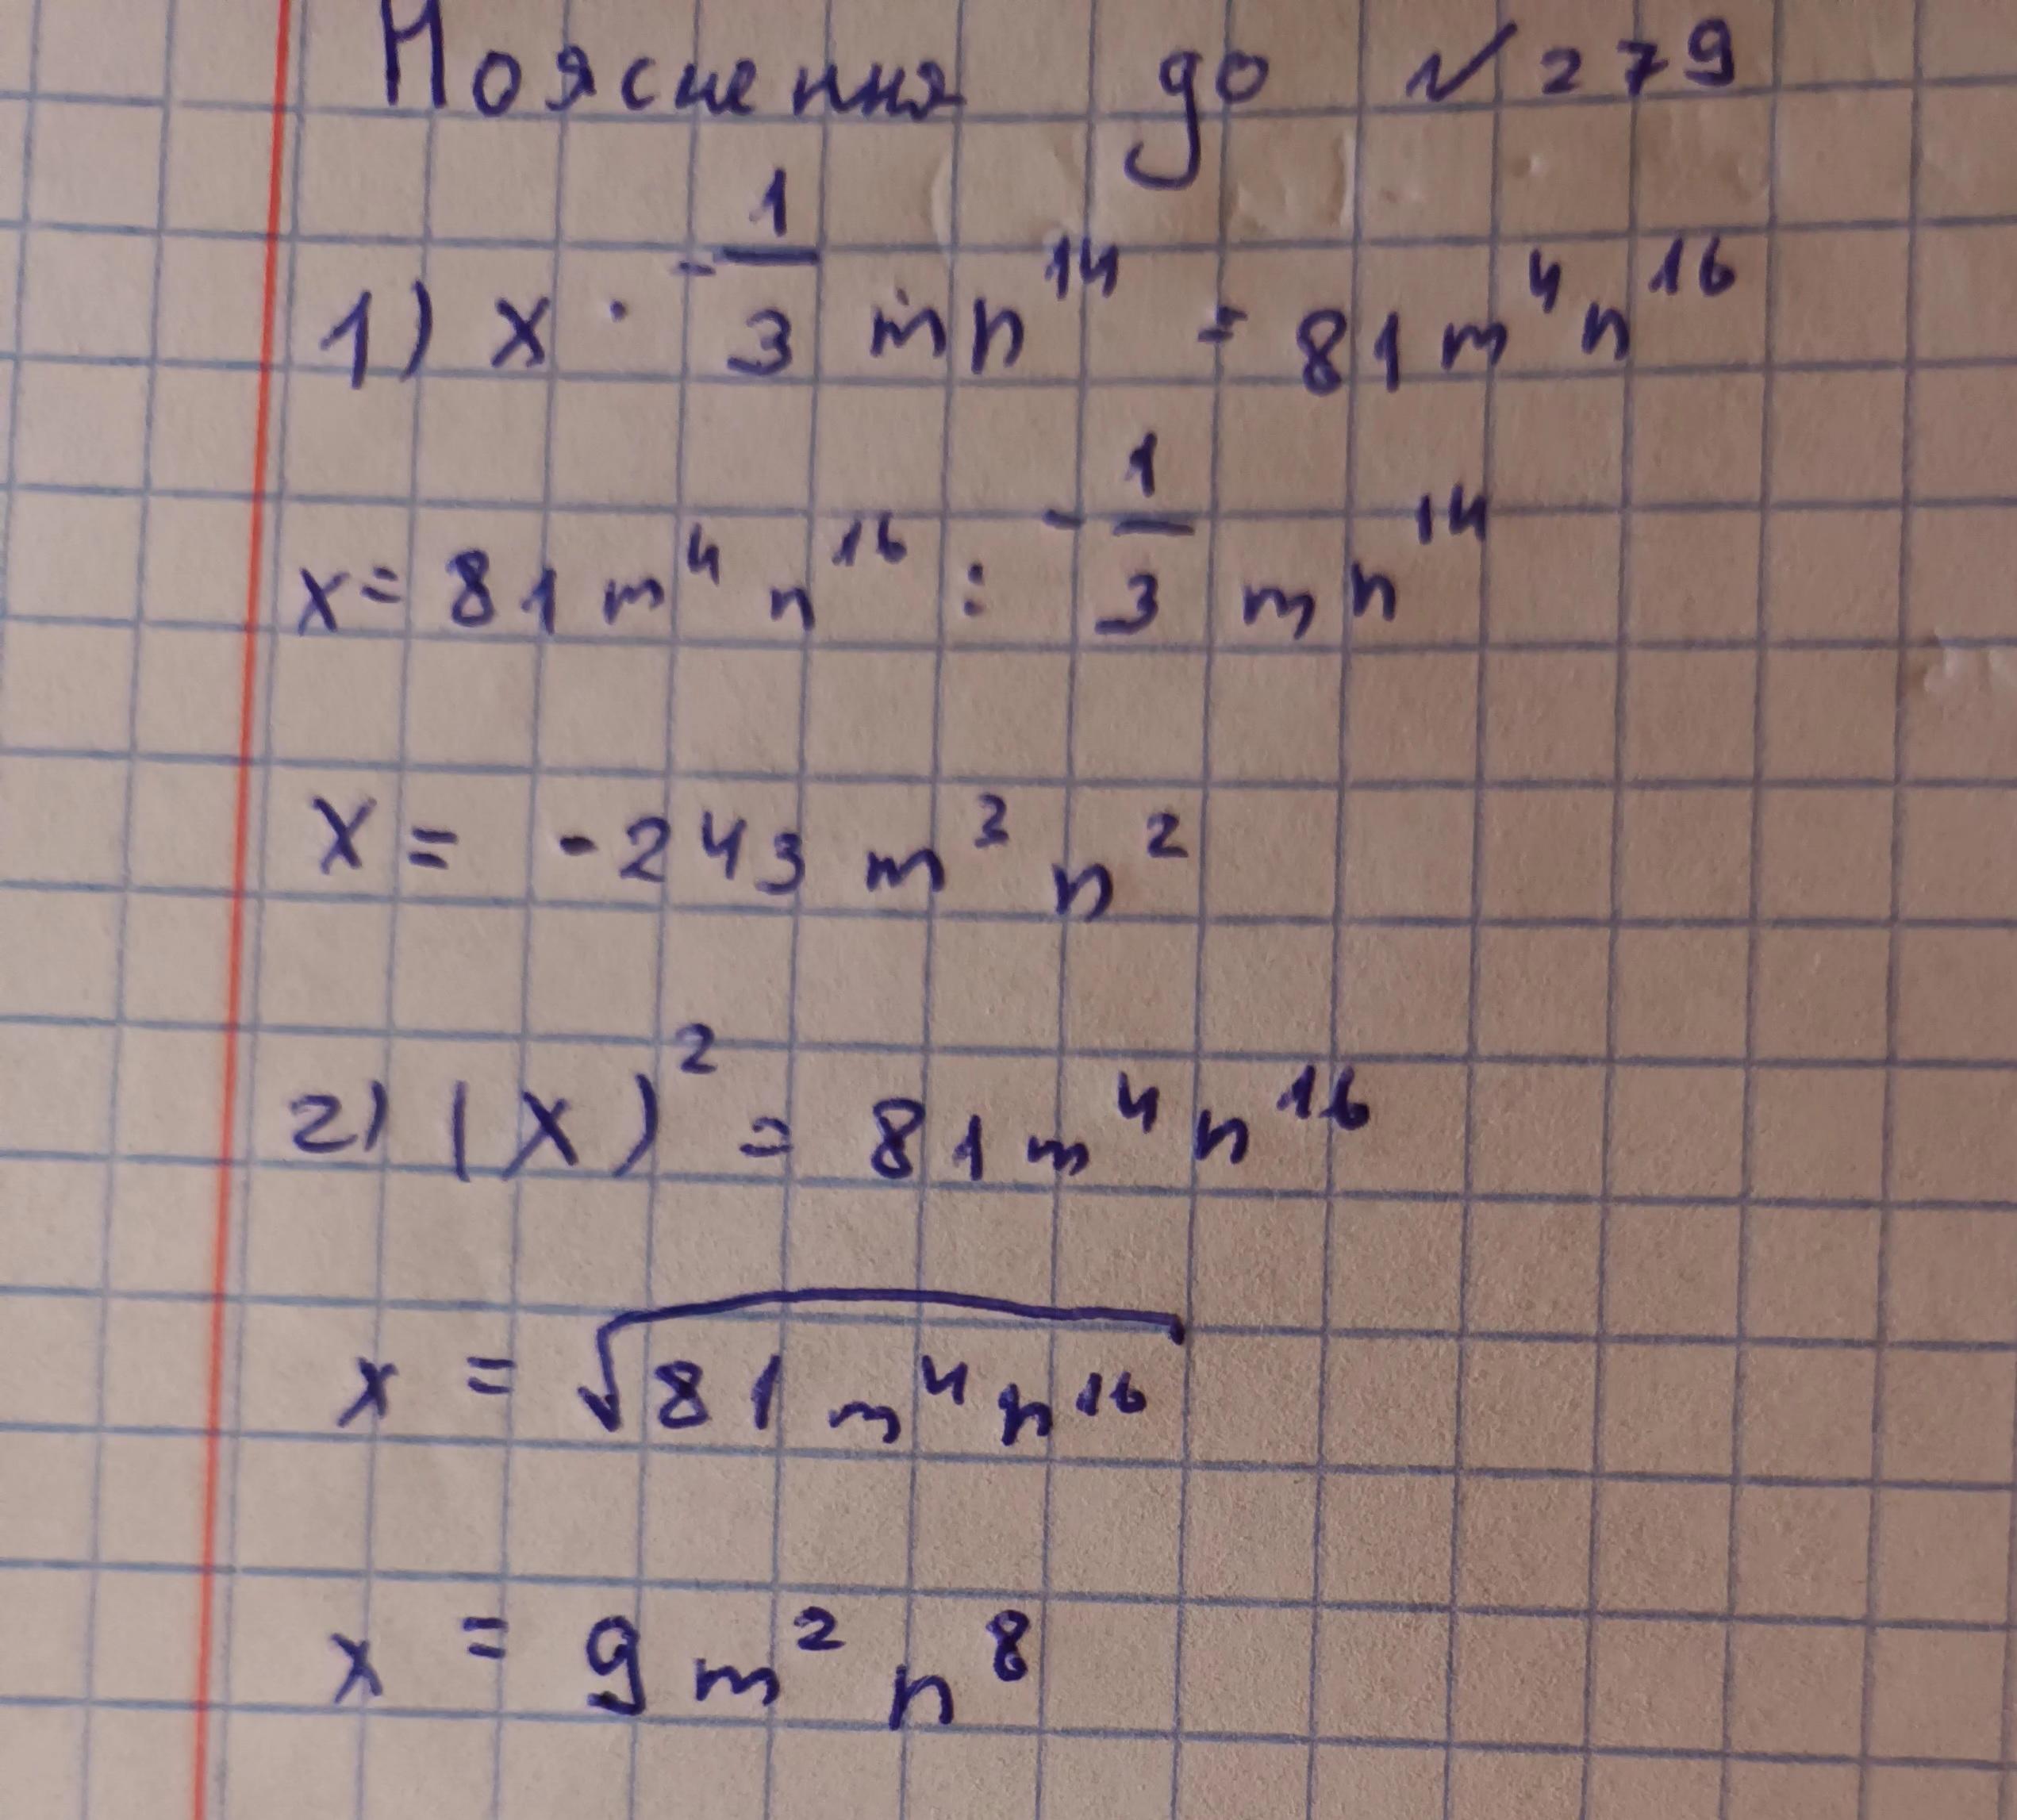 Пояснення до №279
1) x · -1/3 mn¹⁴ = 81m⁴n¹⁶
x = 81m⁴n¹⁶ : -1/3 mn¹⁴
x = -243m³n²
2) (x)² = 81m⁴n¹⁶
x = √81m⁴n¹⁶
x = 9m²n⁸